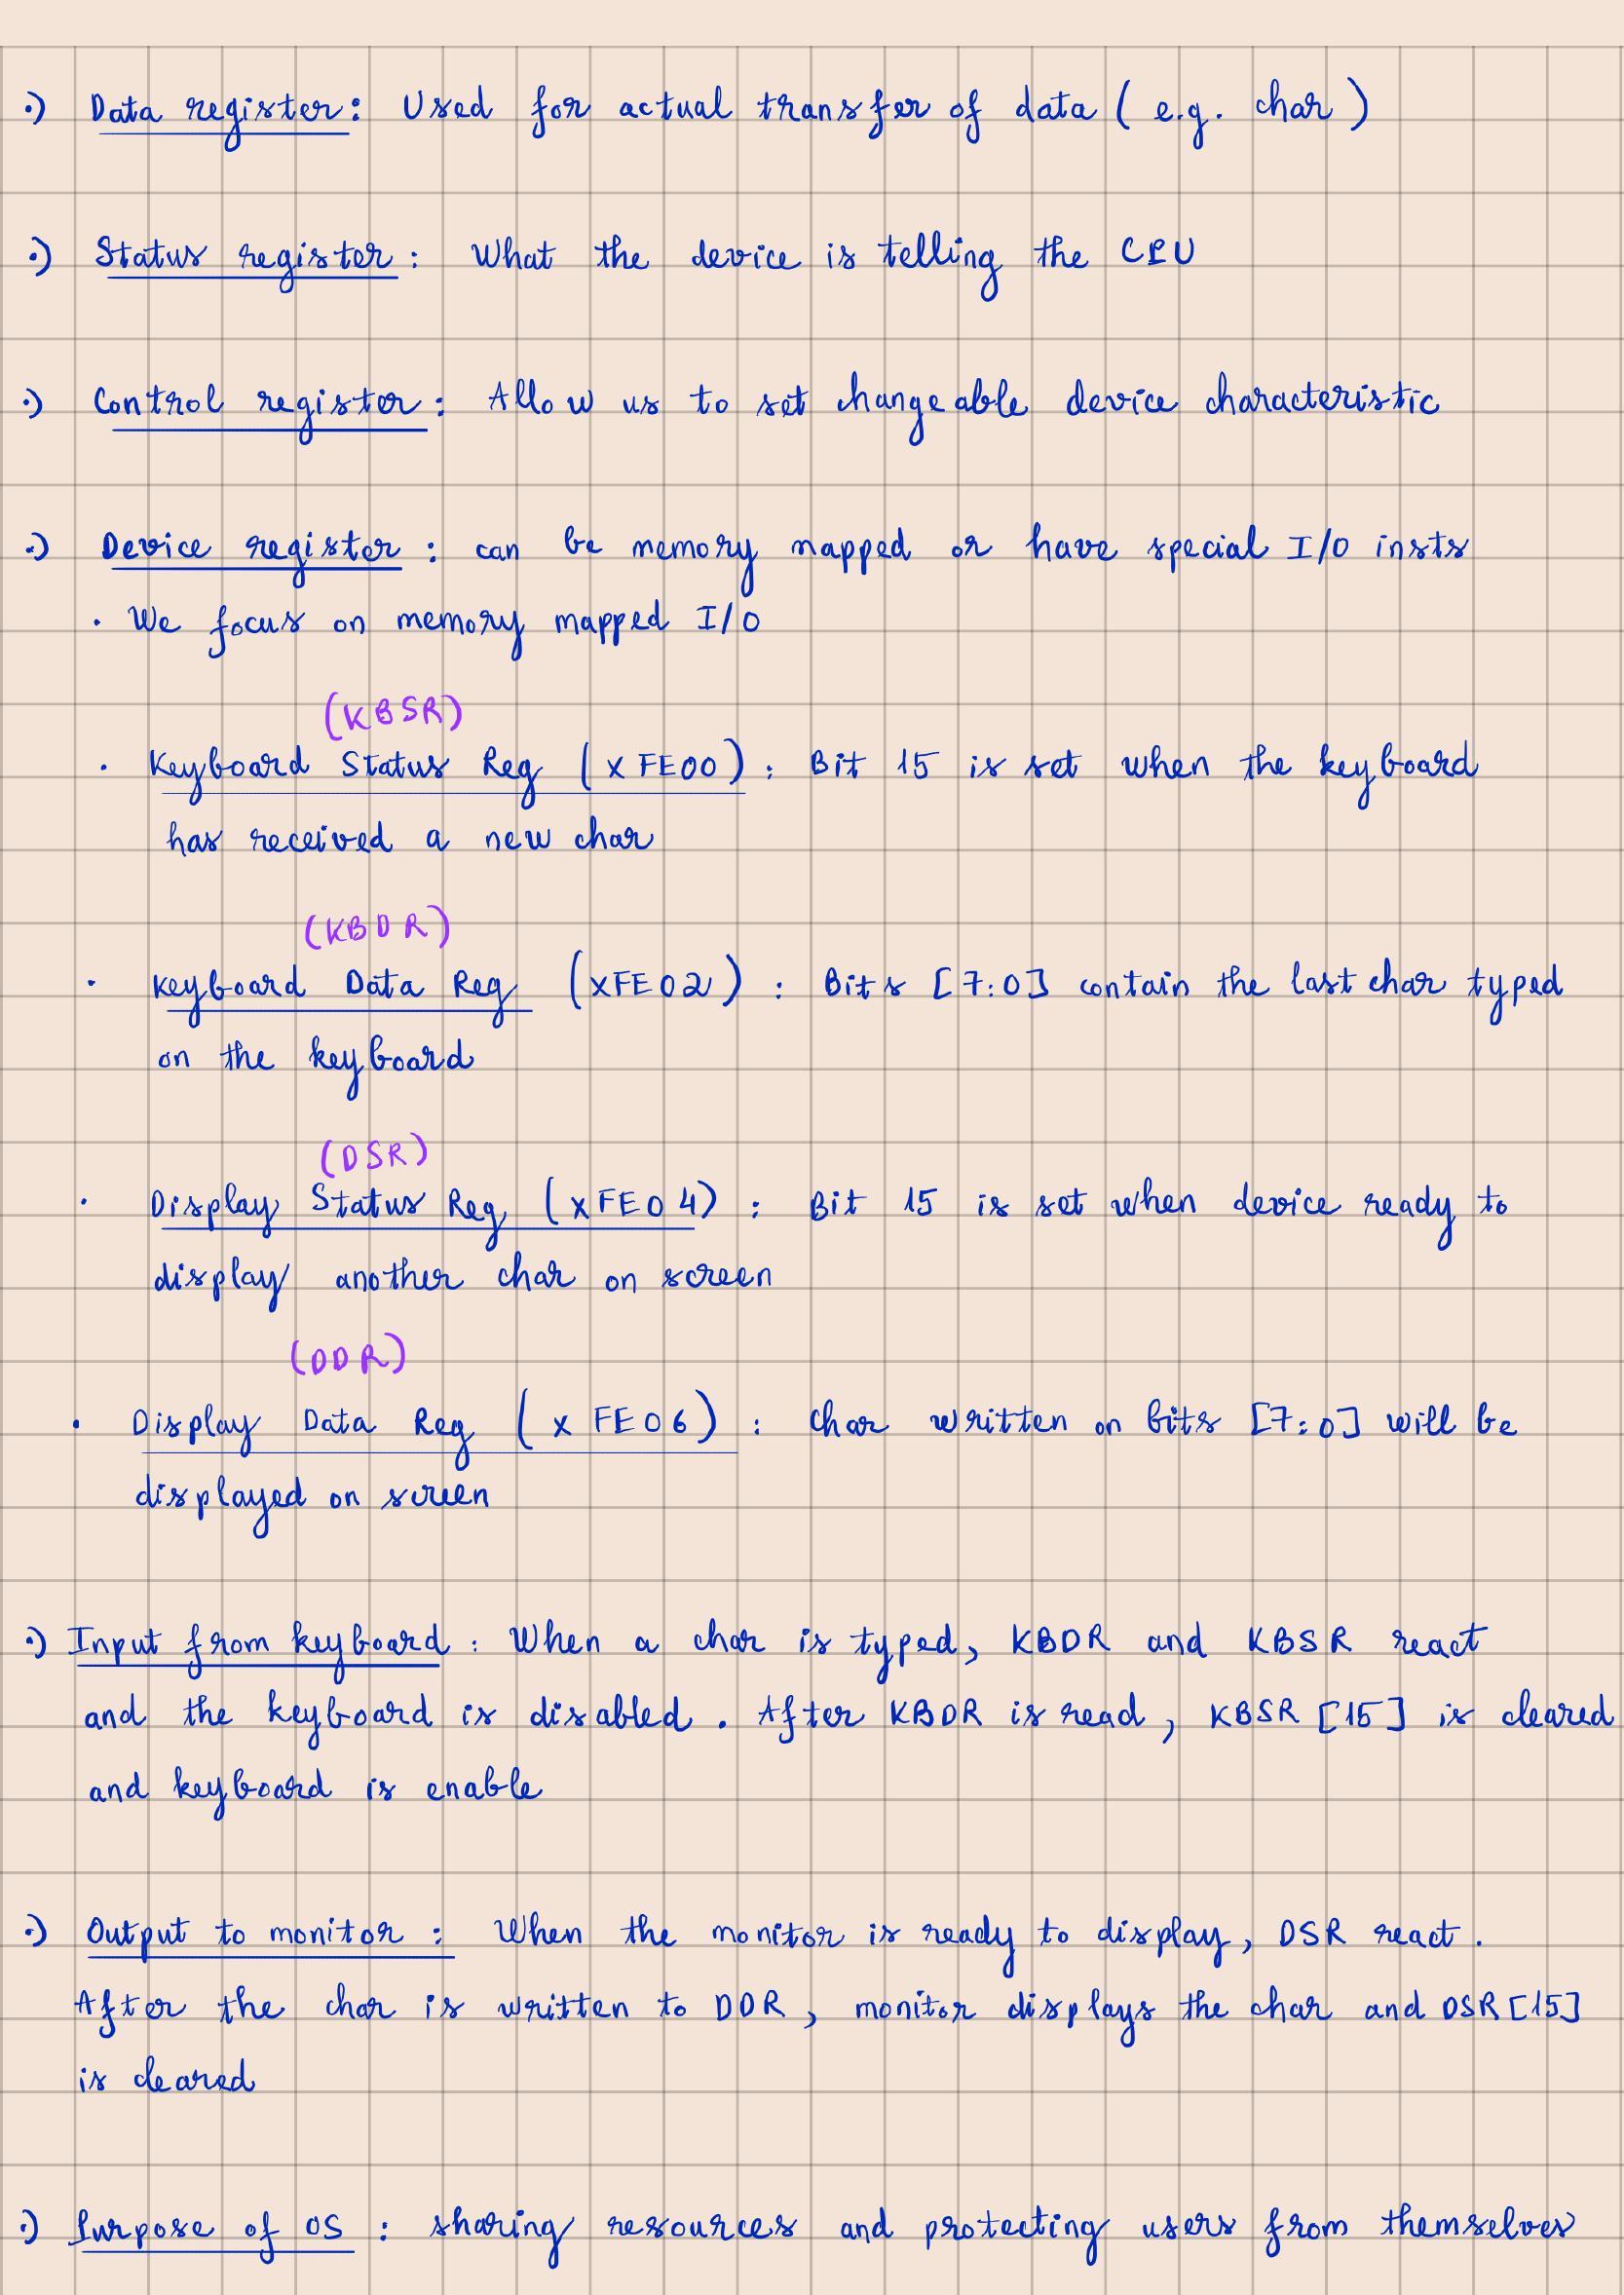 ·) Data register: Used for actual transfer of data (e.g. char)
·) Status register: What the device is telling the CPU
·) Control register: Allow us to set changeable device characteristic
·) Device register: can be memory mapped or have special I/O insts
· We focus on memory mapped I/O
(KBSR)
· Keyboard Status Reg (xFE00): Bit 15 is set when the keyboard
has received a new char
(KBDR)
· Keyboard Data Reg (xFE02): Bits [7:0] contain the last char typed
on the keyboard
(DSR)
· Display Status Reg (xFE04): Bit 15 is set when device ready to
display another char on screen
(DDR)
· Display Data Reg (xFE06): char written on bits [7:0] will be
displayed on screen
·) Input from keyboard: When a char is typed, KBDR and KBSR react
and the keyboard is disabled. After KBDR is read, KBSR [15] is cleared
and keyboard is enable
·) Output to monitor: When the monitor is ready to display, DSR react.
After the char is written to DDR, monitor displays the char and DSR[15]
is cleared
·) Purpose of OS: sharing resources and protecting users from themselves